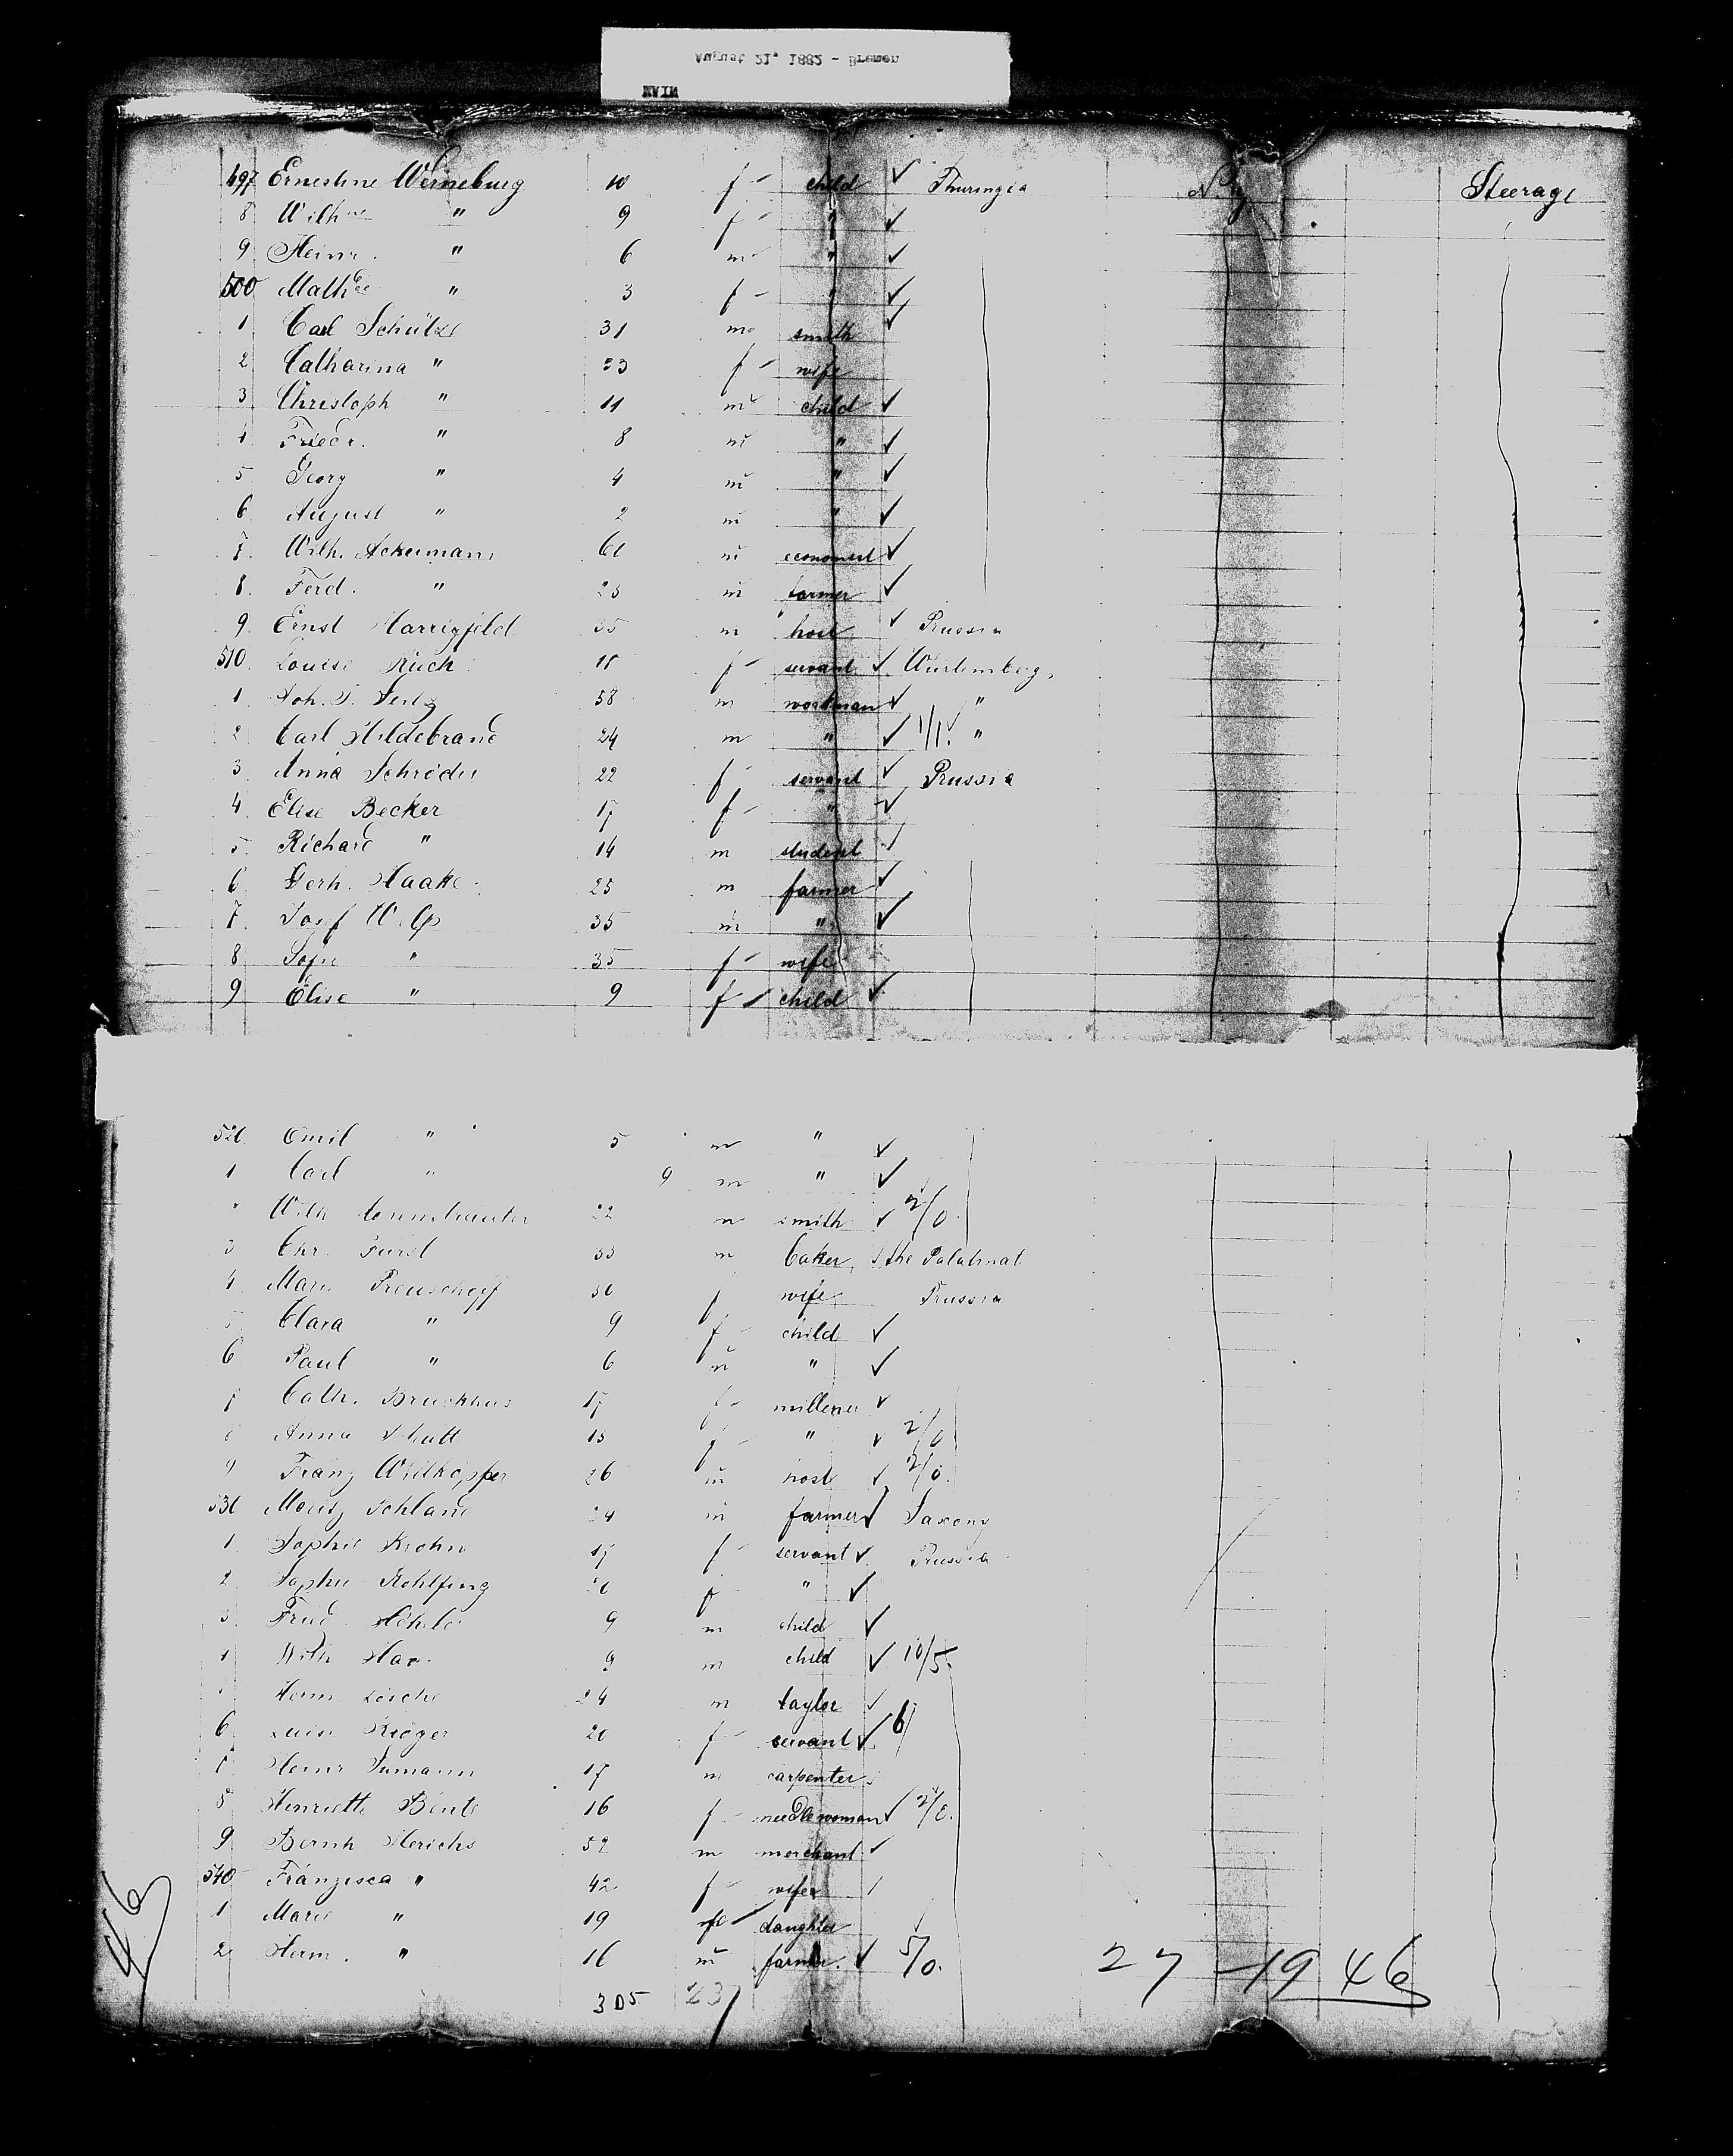 MAIN
August 21, 1882 - Bremen
497 Ernestine Werneburg 10 f child ✓ Thuringia N. Steerage
8 Wilhne " 9 f " ✓
9 Heinr. " 6 m " ✓
500 Mathde " 3 f " ✓
1 Carl Schütze 31 m smith ✓
2 Catharina " 33 f wife
3 Christoph " 11 m child ✓
4 Friedr. " 8 m " ✓
5 Georg " 4 m " ✓
6 August " 2 m " ✓
7. Wilh. Ackermann 61 m economist ✓
8. Ferd. " 23 m farmer ✓
9. Ernst Harrigfeld 35 m host ✓ Prussia
510. Louise Ruch 18 f servant ✓ Würtemberg,
1 Joh. 58 m workman ✓ "
2 Carl Hildebrand 24 m " ✓ 1/1. "
3 Anna Schröder 22 f servant ✓ Prussia
4 Elise Becker 17 f " ✓
5 Richard " 14 m student ✓
6 Gerh. Haake 25 m farmer ✓
7 Josef 35 m " ✓
8 Sofie " 35 f wife
9 Elise " 9 f child ✓
520 Emil " 5 m " ✓
1 Carl " 9 m " ✓
Wilh 22 m smith ✓ 2/0.
3 Chr. Fürst 33 m baker, ✓ the Palatinat
4 Marie Preuschoff 30 f wife Prussia
5 Clara " 9 f child ✓
6 Paul " 6 m " ✓
7 Cath. Bruckhus 17 f milliner ✓
8 Anna Schütt 18 f " ✓ 2/0
9 Franz Wittkopper 26 m host ✓ 2/0.
530 Moritz Schland 24 m farmer ✓ Saxony
1 Sophie Krohn 17 f servant ✓ Prussia
2 Sophie Rohlfing f " ✓
3 Fried. 9 m child ✓
4 Wilh 9 m child ✓ 10/5.
Herm. Lesche 24 m taylor ✓
6 Luise Krüger 20 f servant ✓ 6/
7 Heinr 17 m carpenter
8 Henriette Bente 16 f needlewoman ✓ 2/0.
9 Bernh Herichs 52 m merchant ✓
540 Franzisca " 42 f wife
1 Marie " 19 f daughter
2 Herm. " 16 m farmer. ✓ 5/0. 27 - 19 46
46
305 23